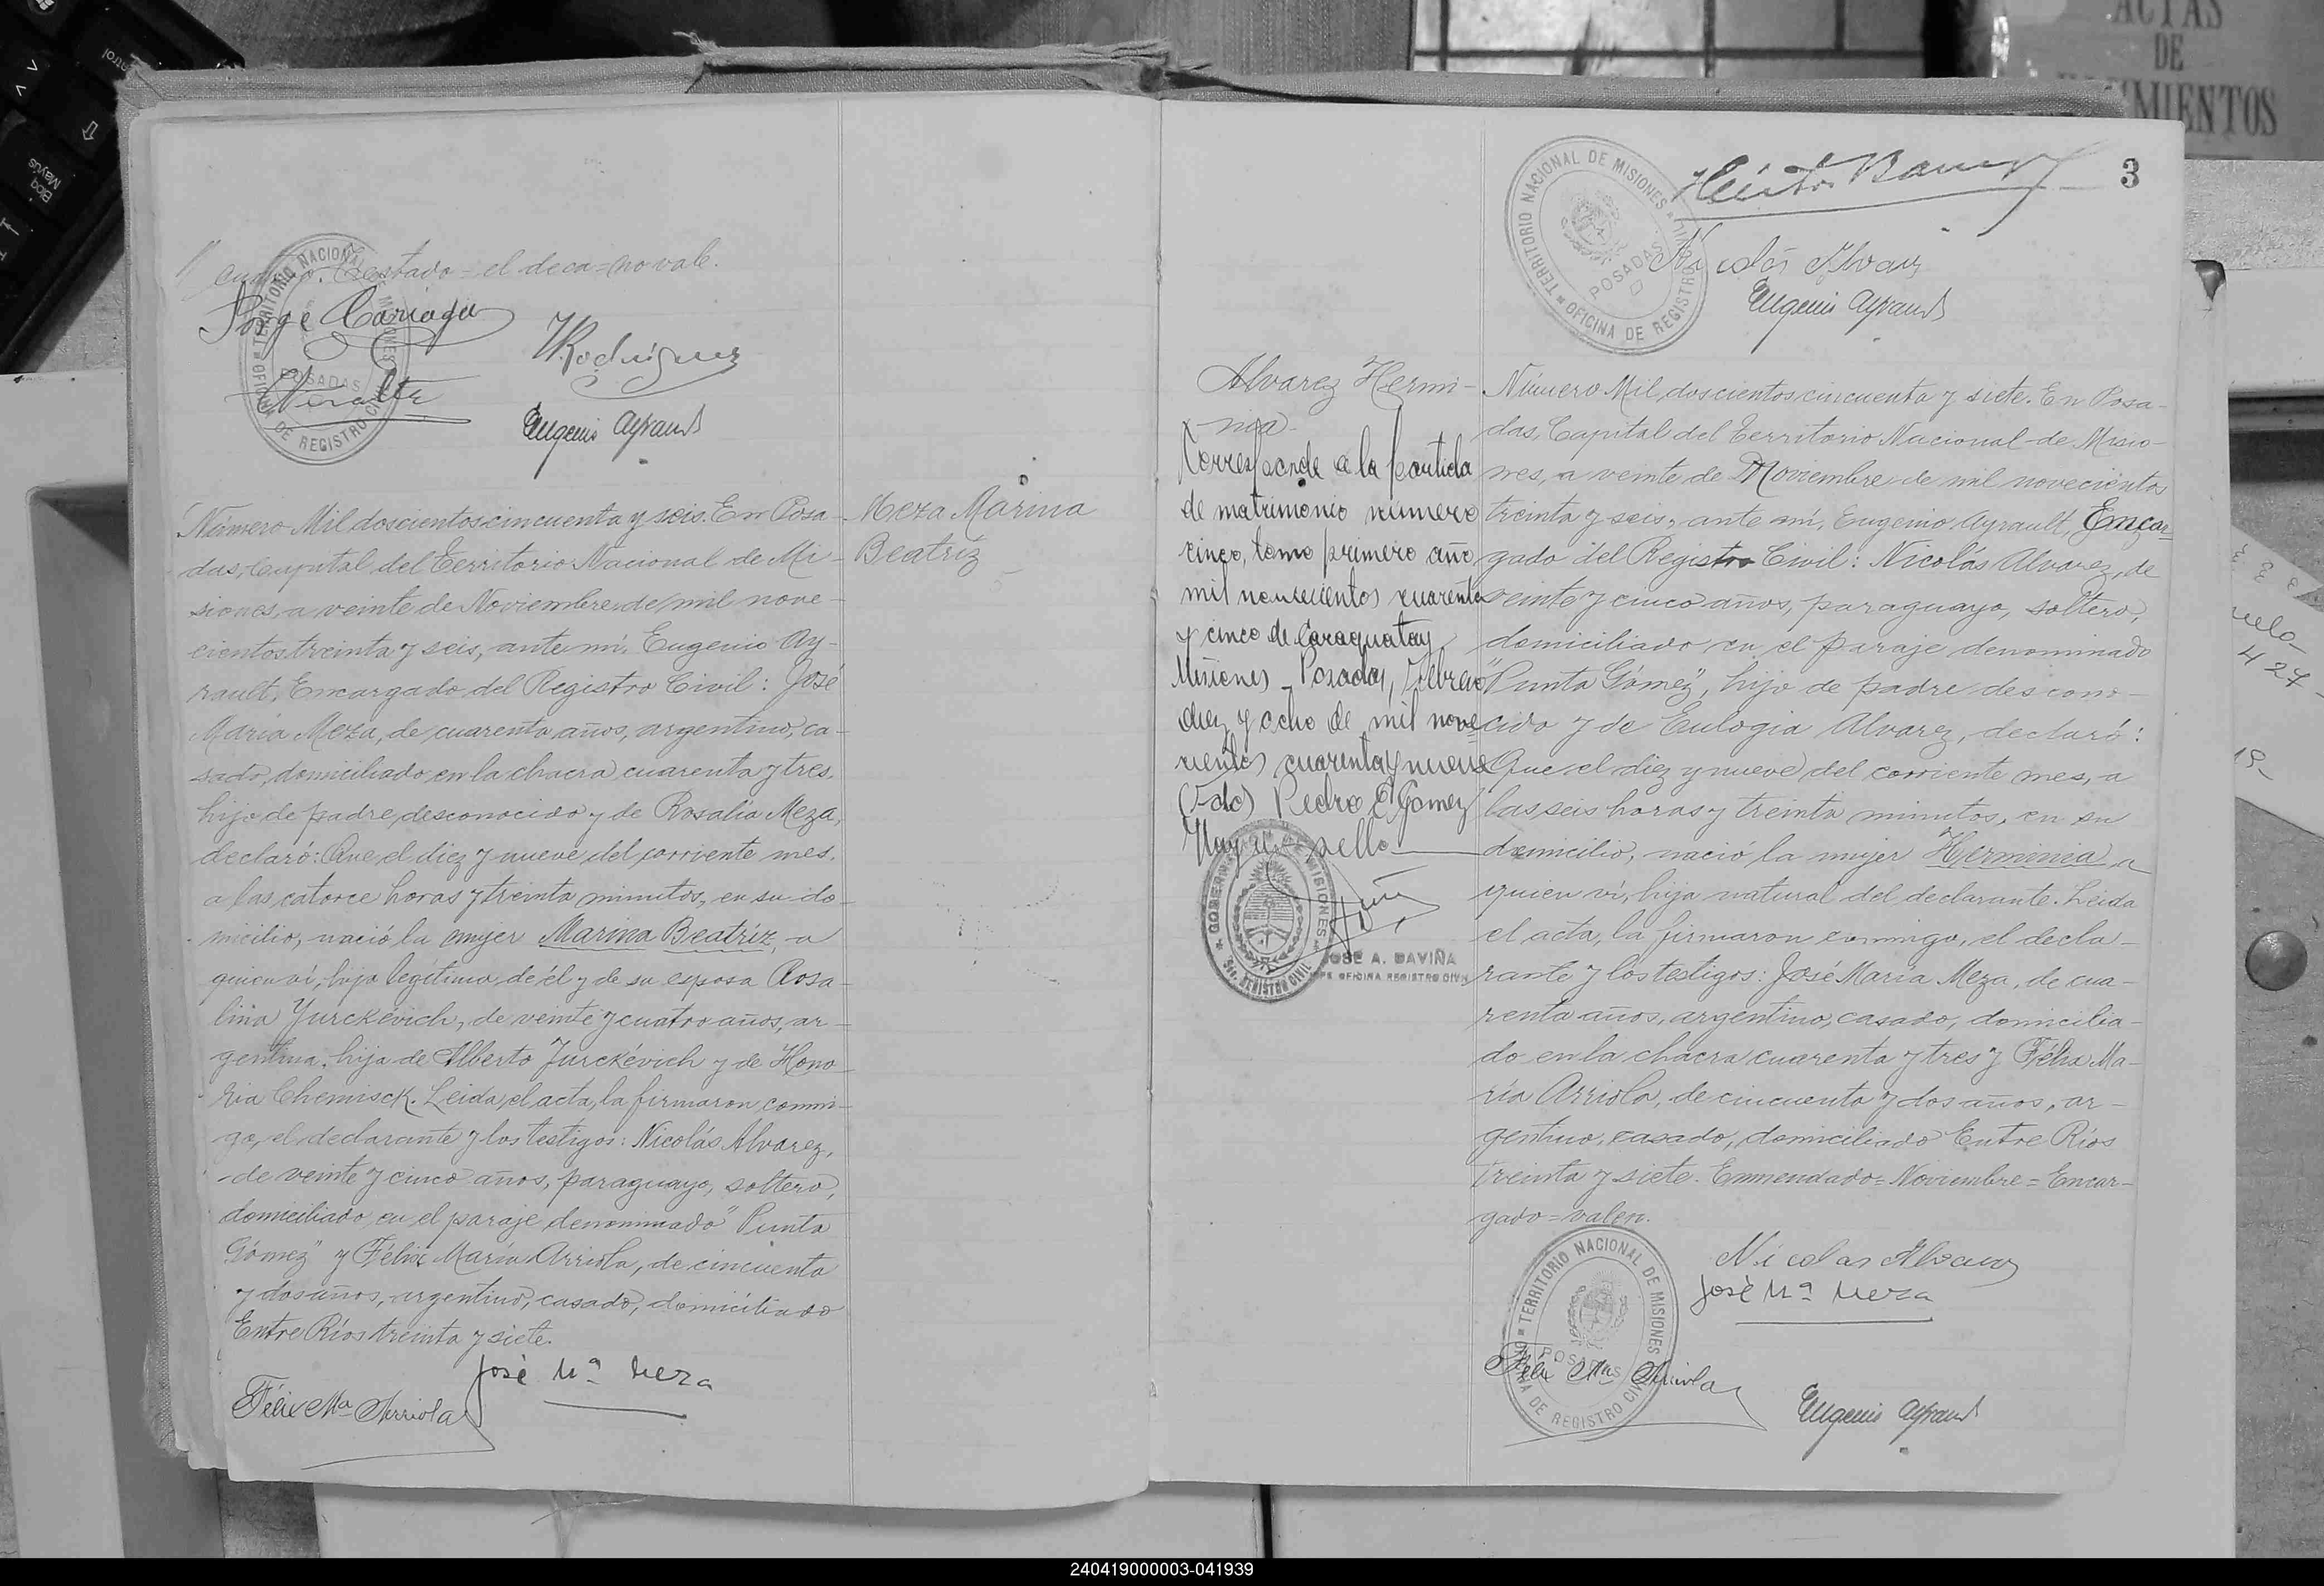 Testado = el deca = no vale.
Jorge Cariaga
Rodriguez
Peralta
Eugenio Ayrault
TERRITORIO NACIONAL DE MISIONES
POSADAS
OFICINA DE REGISTRO CIVIL
Meza Marina
Beatriz
Número Mil doscientos cincuenta y seis. En Posa-
das, Capital del Territorio Nacional de Mi-
siones, a veinte de Noviembre de mil nove-
cientos treinta y seis, ante mí, Eugenio Ay-
rault, Encargado del Registro Civil: José
María Meza, de cuarenta años, argentino, ca-
sado, domiciliado en la chacra cuarenta y tres,
hijo de padre desconocido y de Rosalía Meza,
declaró: Que el diez y nueve del corriente mes,
a las catorce horas y treinta minutos, en su do-
micilio, nació la mujer Marina Beatríz, a
quien ví, hija legítima de él y de su esposa Rosa-
lina Yurckévich, de veinte y cuatro años, ar-
gentina, hija de Alberto Jurckévich y de Hono-
ria Chemisck. Leida el acta, la firmaron conmi-
go, el declarante y los testigos: Nicolás Alvarez,
de veinte y cinco años, paraguayo, soltero,
domiciliado en el paraje denominado "Punta
Gómez" y Félix María Arriola, de cincuenta
y dos años, argentino, casado, domiciliado
Entre Ríos treinta y siete.
José Mª Meza
Félix Mª Arriola
3
TERRITORIO NACIONAL DE MISIONES
POSADAS
OFICINA DE REGISTRO CIVIL
Nicolás Alvarez
Eugenio Ayrault
Alvarez Hermi-
nia.
Corresponde a la partida
de matrimonio número
cinco, tomo primero año
mil novecientos cuarenta
y cinco de Caraguatay
Misiones - Posadas, Febrero
diez y ocho de mil nove=
cientos cuarenta y nueve
(Fdo) Pedro E Gomez
Hay un sello
GOBERNACION MISIONES
REGISTRO CIVIL
JOSE A. DAVIÑA
JEFE OFICINA REGISTRO CIVIL
Número Mil doscientos cincuenta y siete. En Posa-
das, Capital del Territorio Nacional de Misio-
nes, a veinte de Noviembre de mil novecientos
treinta y seis, ante mí, Eugenio Ayrault, Encar-
gado del Registro Civil: Nicolás Alvarez, de
veinte y cinco años, paraguayo, soltero,
domiciliado en el paraje denominado
"Punta Gómez", hijo de padre descono-
cido y de Eulogia Alvarez, declaró:
Que el diez y nueve del corriente mes, a
las seis horas y treinta minutos, en su
domicilio, nació la mujer Herminia, a
quien ví, hija natural del declarante. Leida
el acta, la firmaron conmigo, el decla-
rante y los testigos: José María Meza, de cua-
renta años, argentino, casado, domicilia-
do en la chacra cuarenta y tres y Félix Ma-
ría Arriola, de cincuenta y dos años, ar-
gentino, casado, domiciliado Entre Ríos
treinta y siete. Enmendado = Noviembre = Encar-
gado = valen.
Nicolas Alvarez
José Mª Meza
TERRITORIO NACIONAL DE MISIONES
POSADAS
OFICINA DE REGISTRO CIVIL
Félix Mª Arriola
Eugenio Ayrault
ACTAS
DE
427
Bloq
Mayús
240419000003-041939